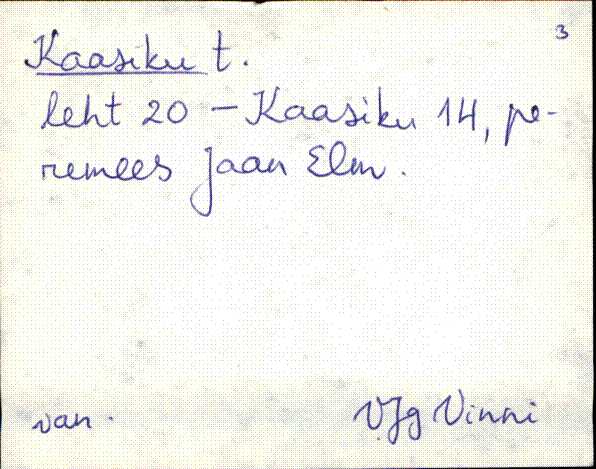 3
Kaasiku t.
leht 20 – Kaasiku 14, pe-
remees Jaan Elm.
van.
VJg Vinni